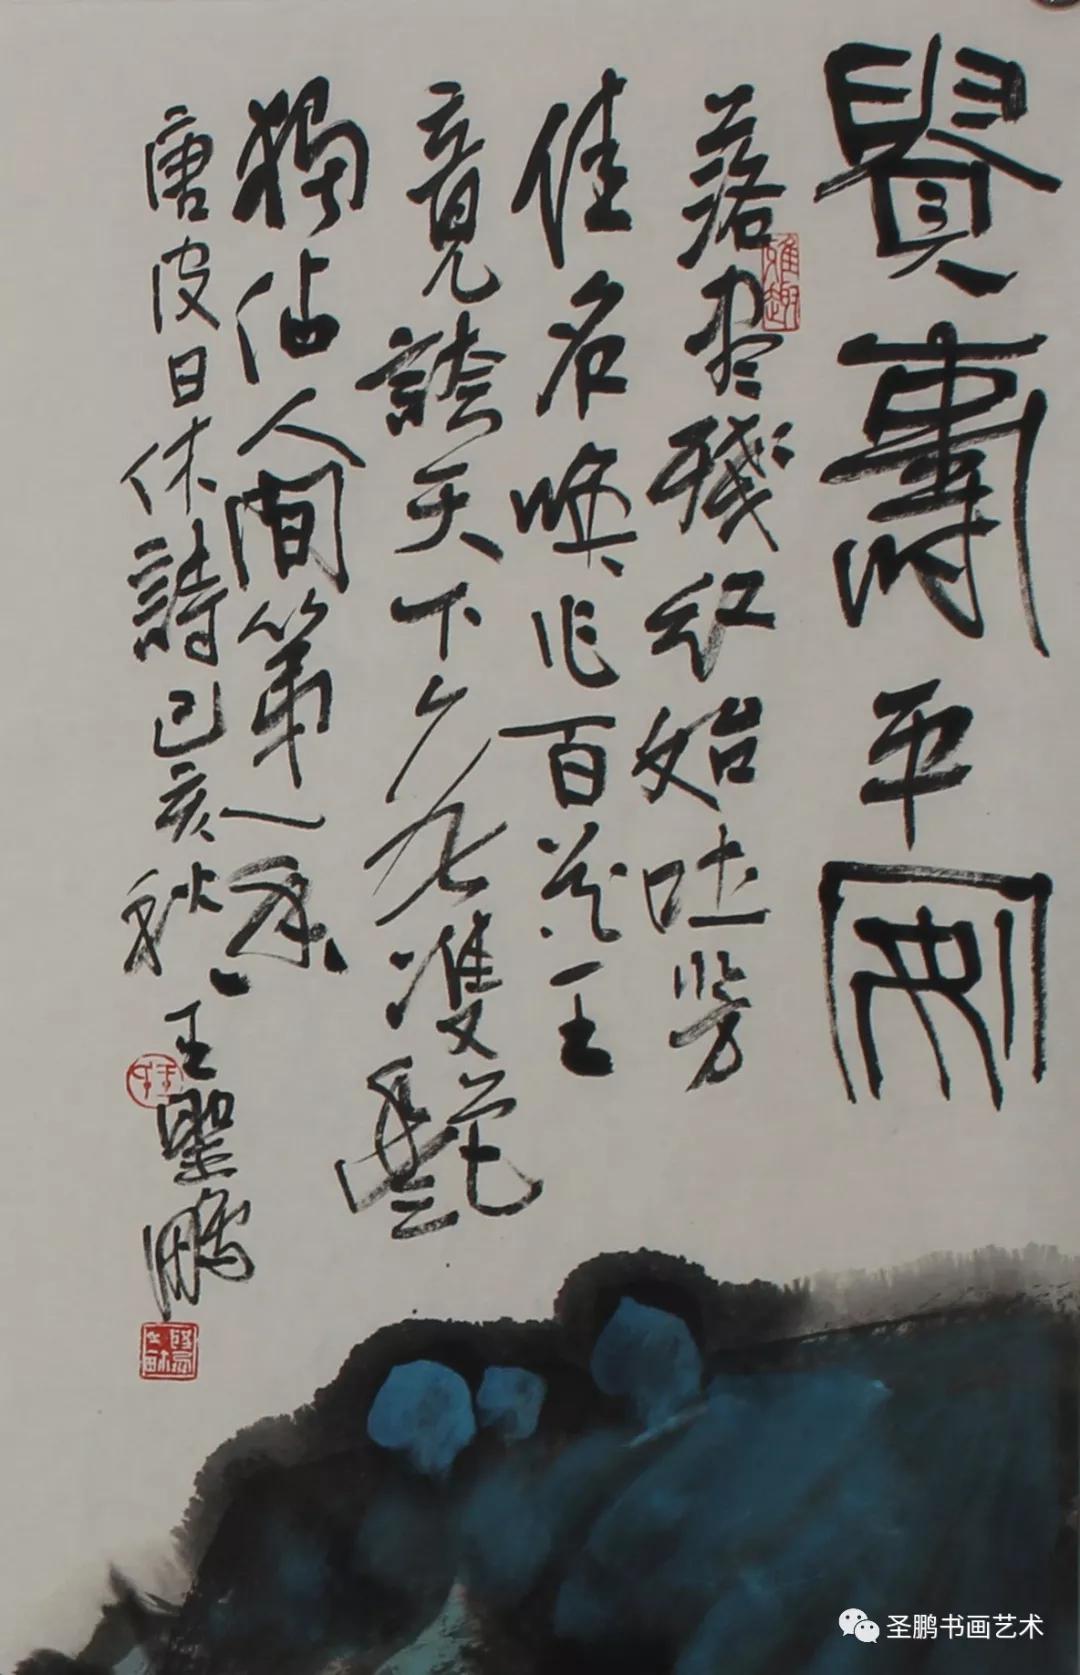 賢壽平安
落盡殘紅始吐芳
雅趣
佳名喚作百花王
竟誇天下无雙艷
獨佔人間第一香
唐皮日休詩己亥秋王聖鵬
圣鹏书画艺术